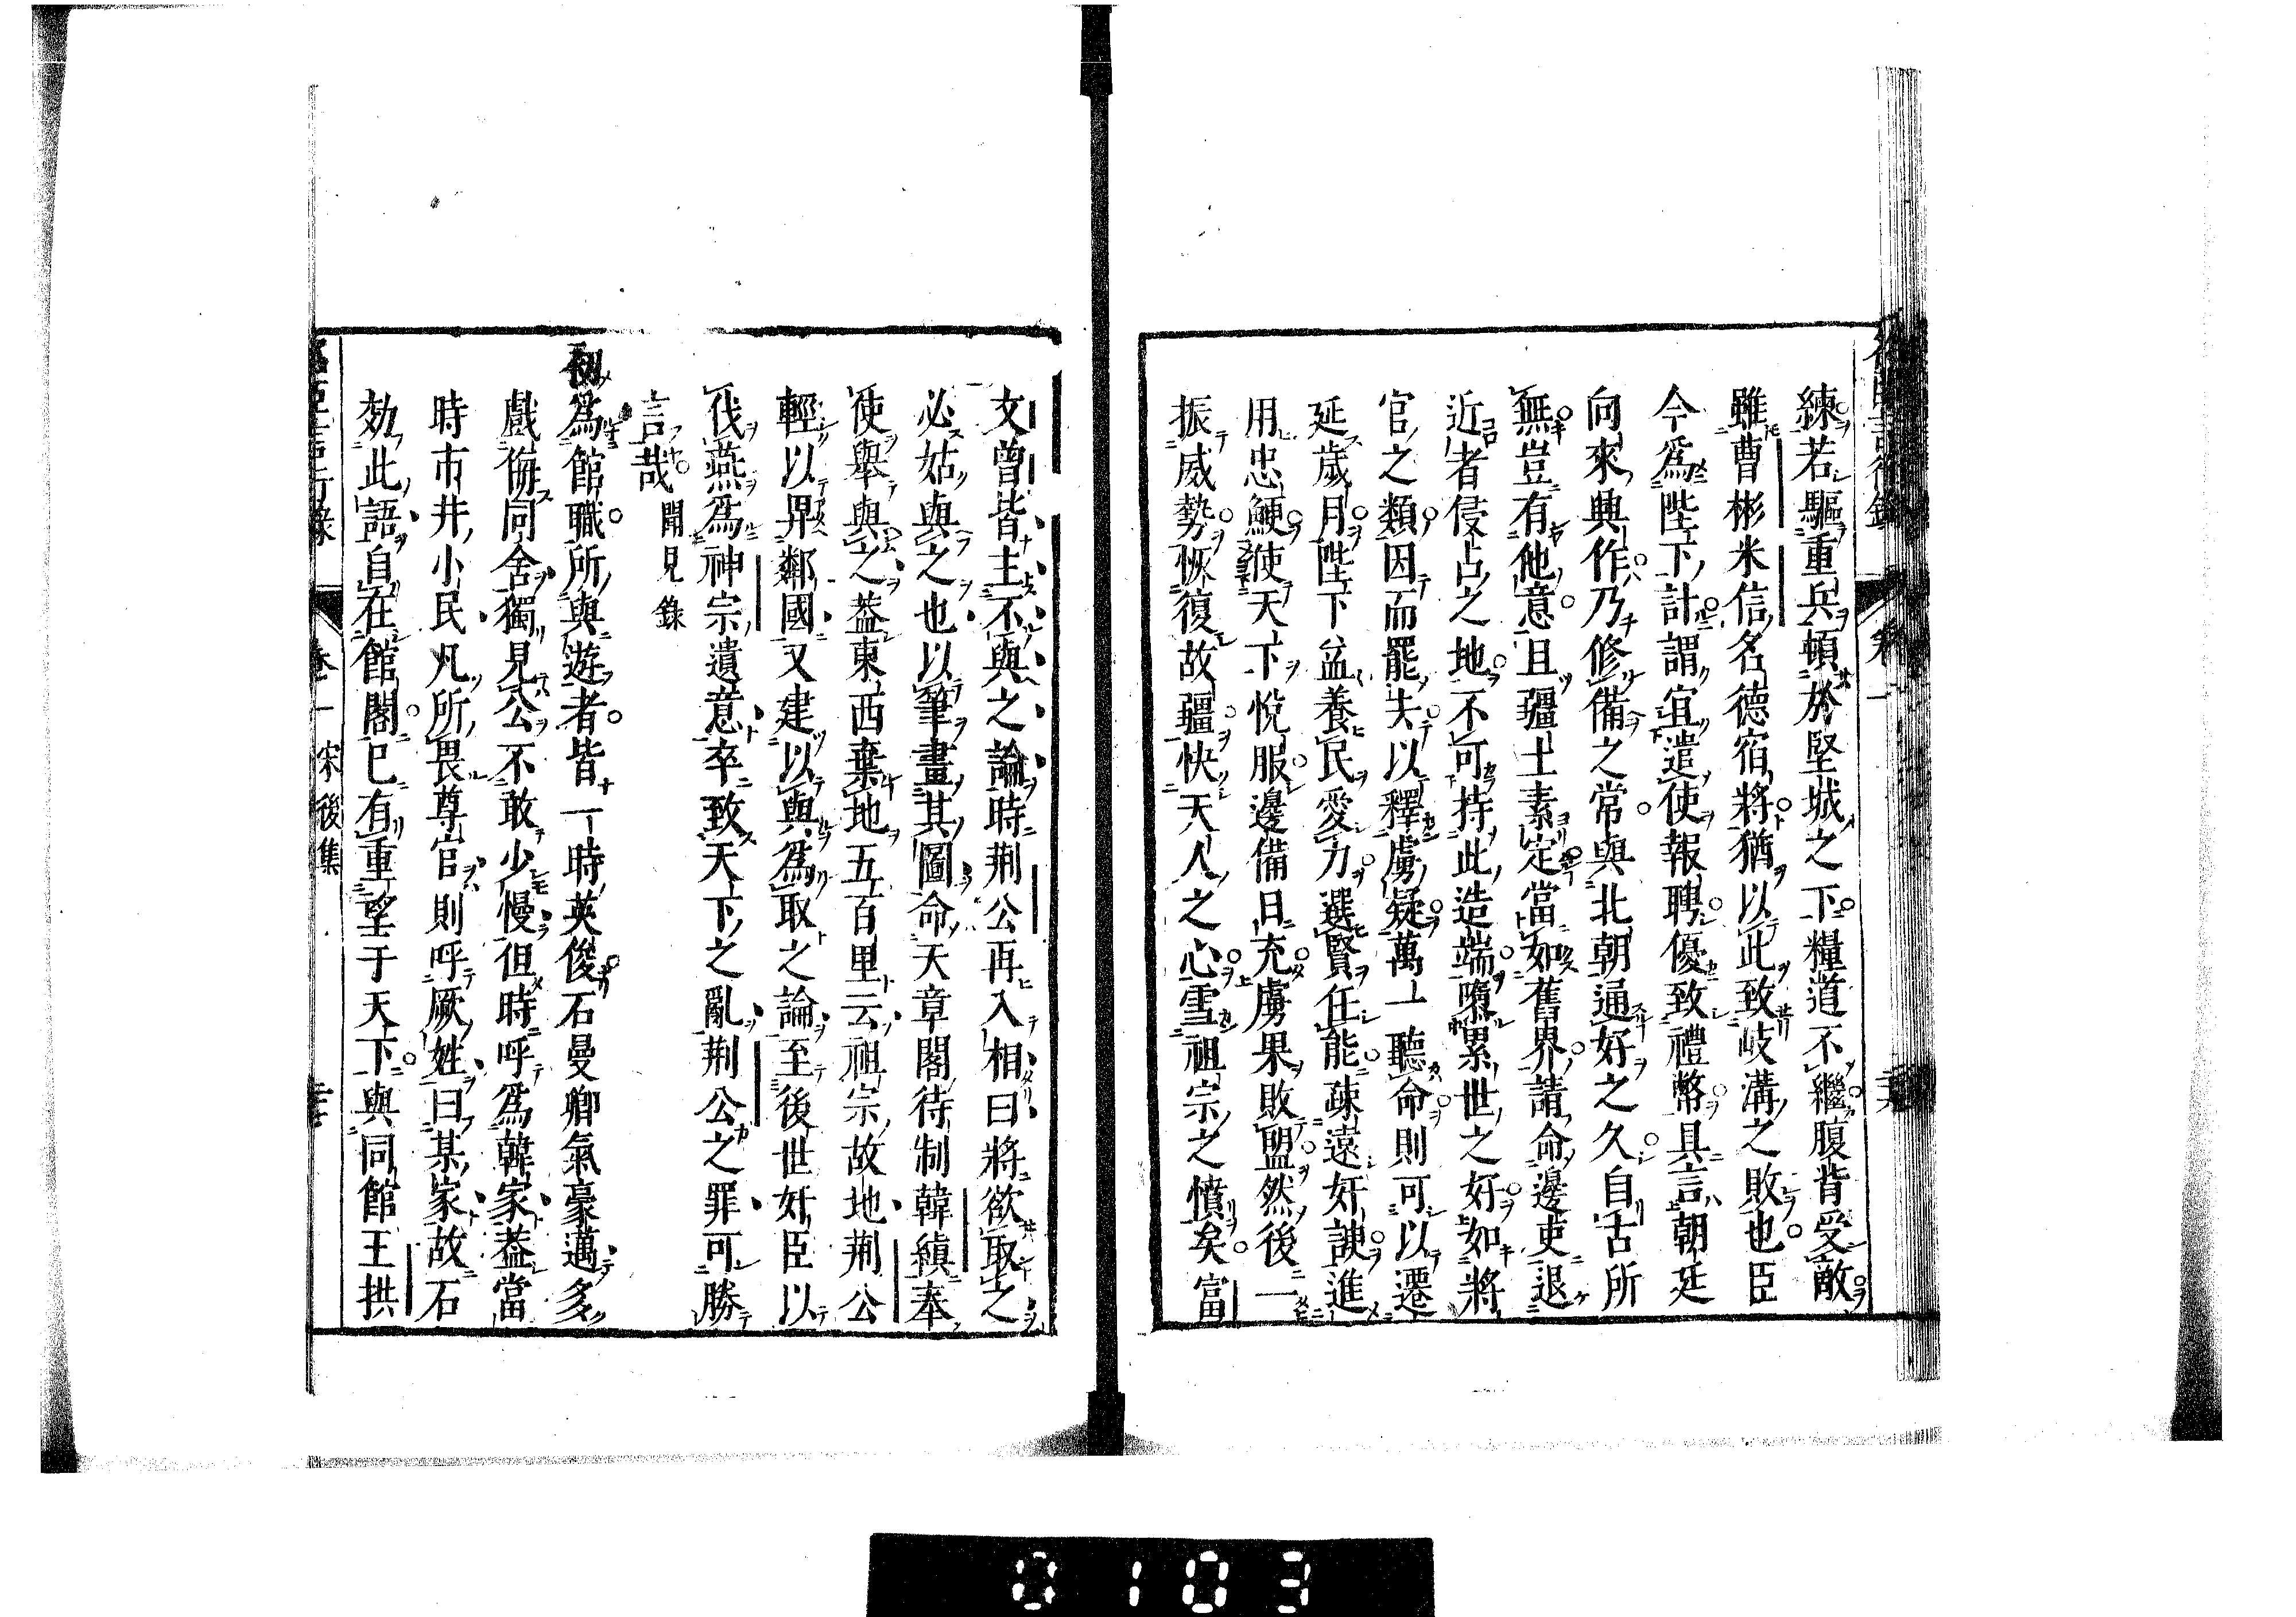 練若驅重兵頓於堅城之下糧道不繼腹背受敵
雖曹彬米信名德宿將猶以此致岐溝之敗也臣
今爲陛下計謂宜遣使報聘優致禮幣具言朝廷
向來興作乃修備之常與北朝通好之久自古所
無豈有他意且疆土素定當如舊界請命邊吏退
近者侵占之地不可持此造端隳累世之好如將
官之類因而罷去以釋虜疑萬一聽命則可以遷
延歲月陛下益養民愛力選賢任能疎遠奸諛進
用忠鯁使天下悅服邊備日充虜果敗盟然後一
振威勢恢復故疆快天人之心雪祖宗之憤矣富
文曾皆主不與之論時荆公再入相曰將欲取之
必姑與之也以筆畫其圖命天章閣待制韓縝奉
使舉與之葢東西棄地五百里云祖宗故地荆公
輕以畀鄰國又建以與爲取之論至後世奸臣以
伐燕爲神宗遺意卒致天下之亂荆公之罪可勝
言哉聞見錄
初爲館職所與遊者皆一時英俊石曼卿氣豪邁多
戲侮同舍獨見公不敢少慢但時呼爲韓家葢當
時市井小民凡所畏尊官則呼厥姓曰某家故石
効此語自在館閣已有重望于天下與同館王拱
卷一 宋後集
0103